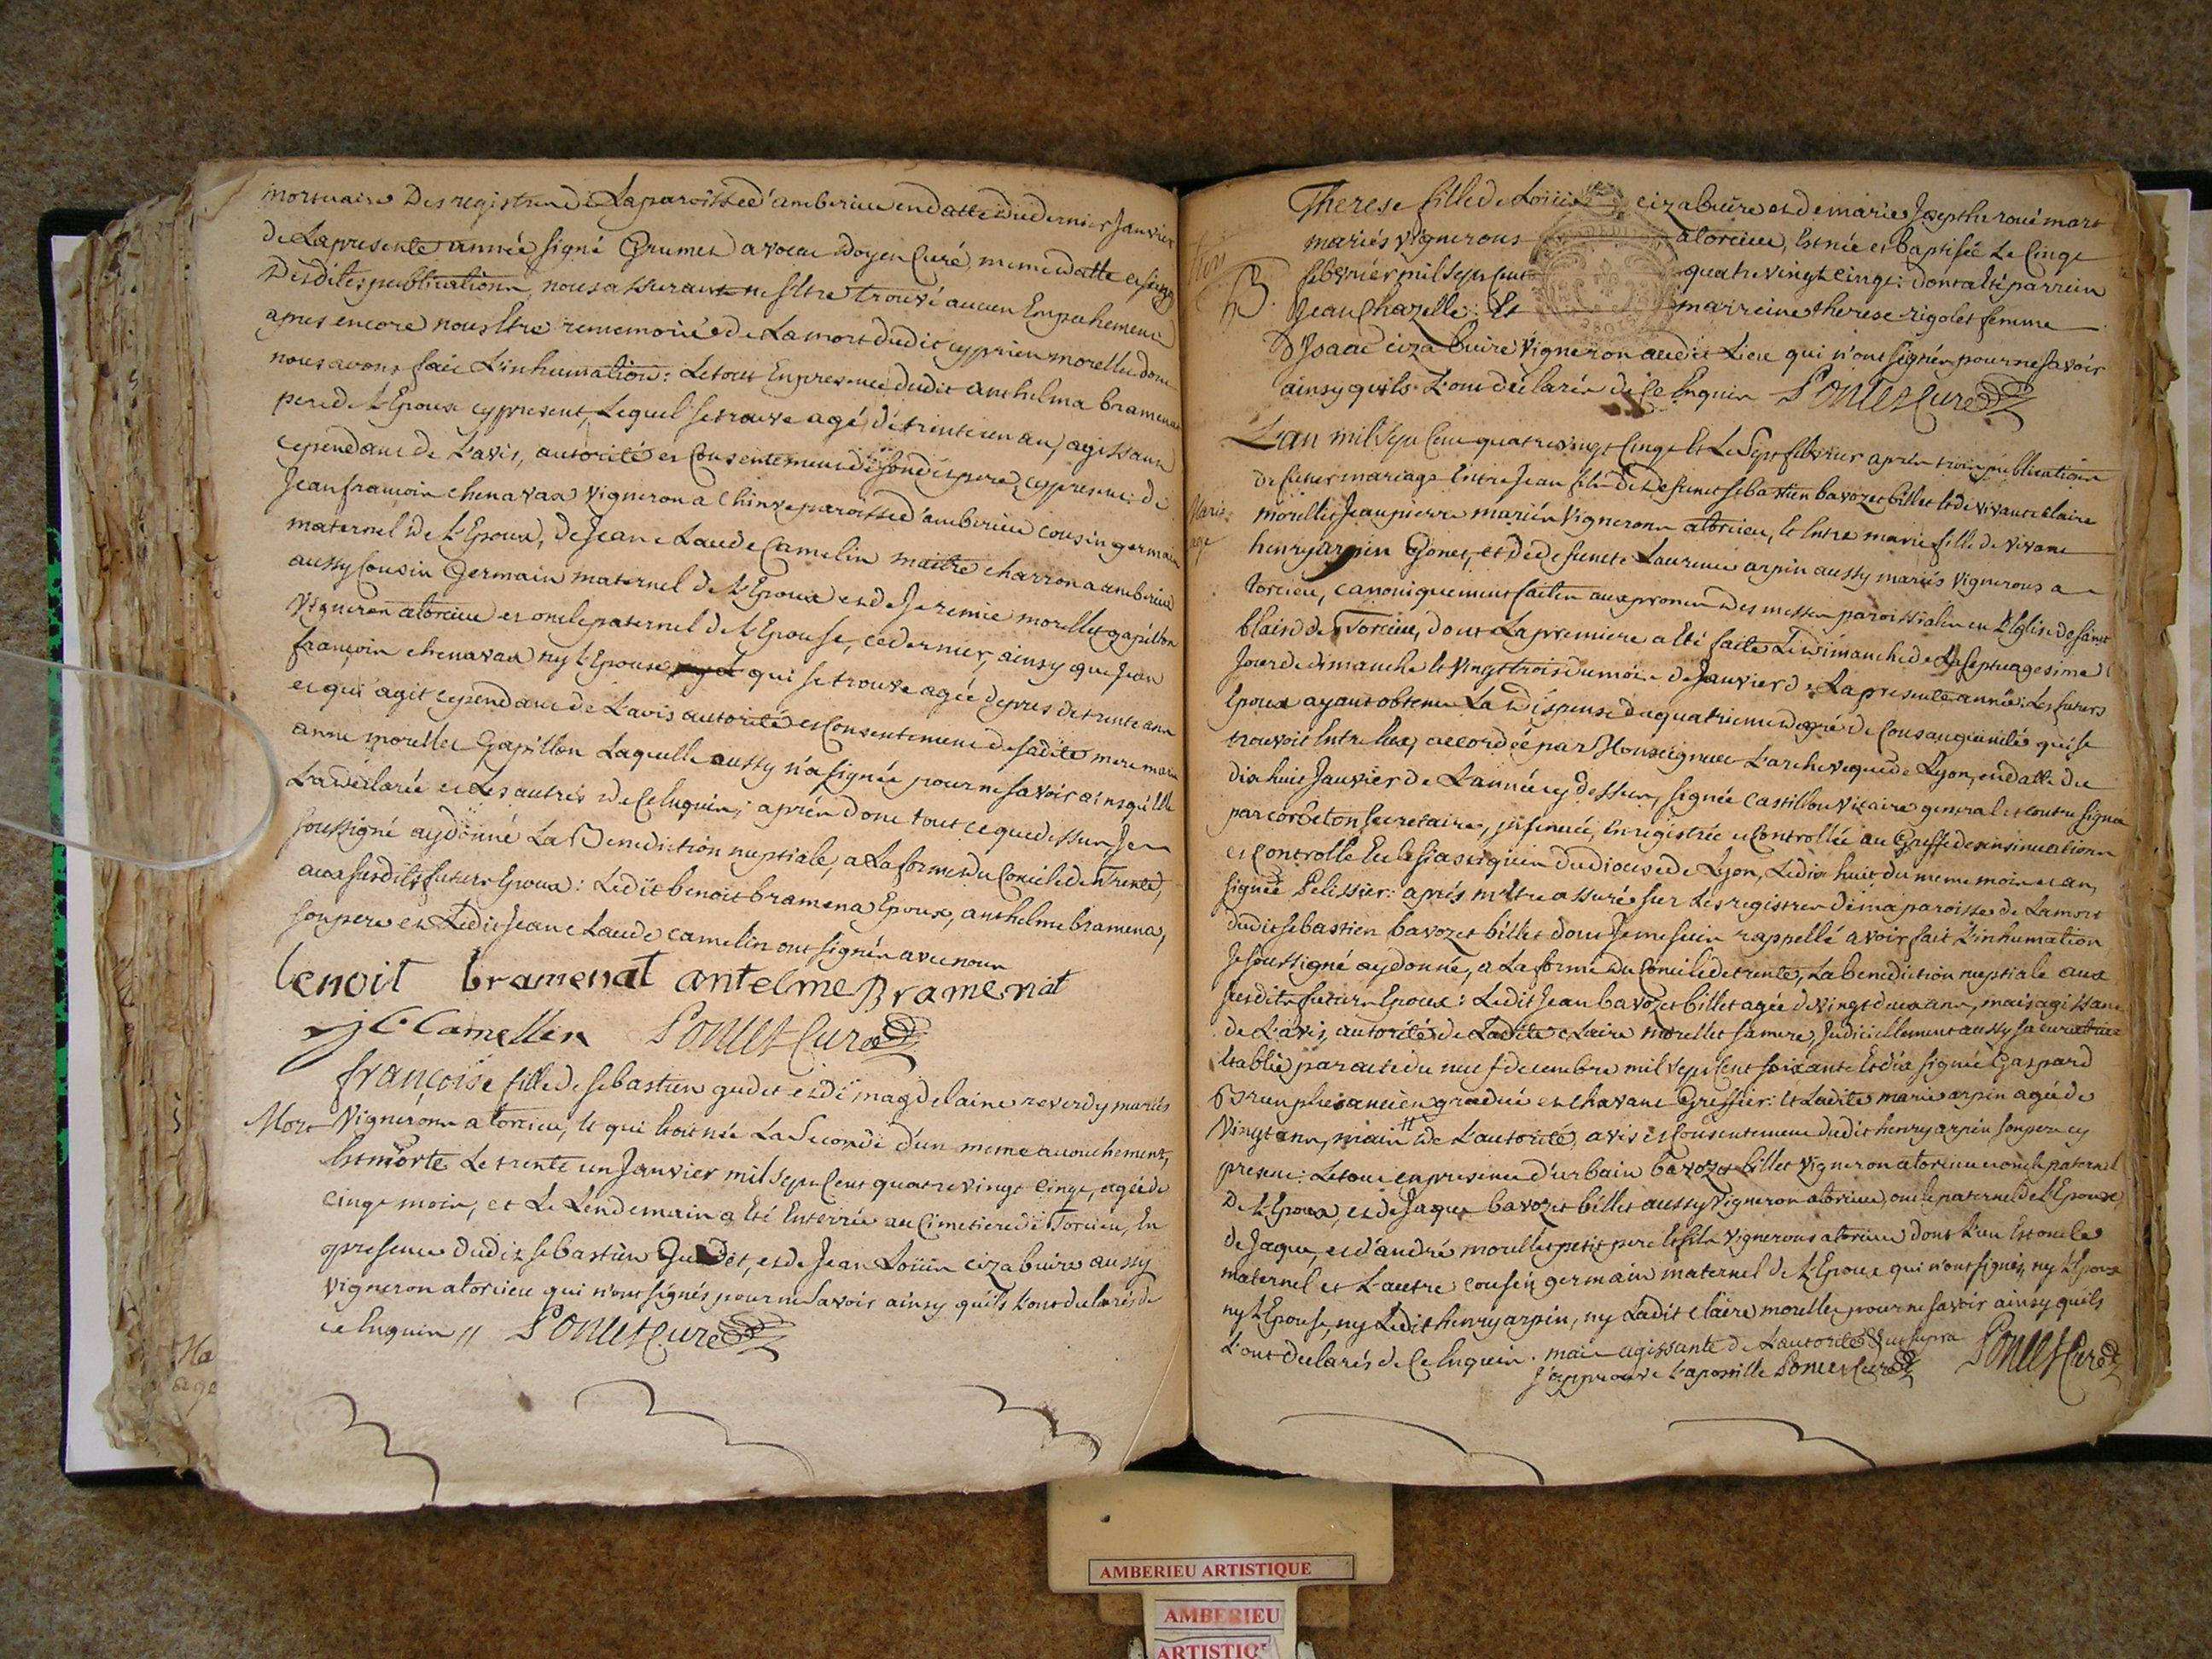 mortuaire des registres de La paroisse d'amberieu en datte du dernier Janvier
de La presente année signé Grumet avocat doyen Curé, meme datte et seing
desdites publications nous assurant ne s'Etre trouvé aucun Empechement
apres encore nous Etre rememorié de La mort dudit cyprien morellet dont
nous avons fait L'inhumation: Le tout En presence dudit anthelma bramena
pere de L'Epoux cy present, Lequel se trouve agé de trente un an, agissant
cependant de L'avis, autorité et Consentement de sondit pere cy present: de
Jean francoin chenavax vigneron a paroisse d'amberieu cousin germain
maternel de L'Epoux, de Jean Claude Camelin maitre charron a amberieu
aussy Cousin Germain maternel de L'Epoux et de Jeremie morellet gapillon
vigneron a torcieu et oncle paternel de L'Epouse, ce dernier, ainsy que Jean
françoin chenavax ny L'Epouse qui se trouve agée de pres de trente ann
et qui agit cependant de L'avis autorité et Consentement de sadite mere
anne morellet Gapillon Laquelle aussy n'a signée pour ne savoir ainsy qu'elle
L'a déclarée et Les autres de Ce Enquin; aprèn donc tout ce que dessus, Je
soussigné ay donné La Benediction nuptiale, a La forme du Concile de Trente,
aux susdits futurs Epoux: Ledit benoit bramena Epoux, anthelme bramena,
son pere et Ledit Jean Claude camelin ont signén avec noun
benoit bramenat antelme Bramenat
j C Camellin Ponset Curé
françoise fille de sebastien gudet et de magdelaine reverdy mariés
Mort
Vignerons a torcieu, Et qui Etoit née La Seconde d'un meme accouchement,
Est morte Le trente un Janvier mil sept Cent quatre vingt Cinq, agée de
cinq moin, et Le Lendemain a Eté Enterrée au Cimetiere de Torcieu, En
presence dudit sebastien Gudet, et de Jean Loüin cizabuire aussy
vigneron a torcieu qui n'ont signés pour ne Savoir ainsy qu'ils L'ont declarés de
ce Enquin // Ponset Curé
Ma
age
Therese fille de Loüin cizabuire et de marie Josephe
mariés vignerons a torcieu, Est née et baptisée Le Cinq
B.
febvrier mil sept Cent quatre vingt cinq: dont a Eté parrein
Jean Chazelle: Et marreine therese rigolet femme
D'Ysaac cizabuire Vigneron audit Lieu qui n'ont signén pour ne savoir
ainsy qu'ils L'ont declarén de Ce Enquin Ponset Curé
L'an mil sept Cent quatre vingt Cinq Et Le Sept febvrier aprèn troin publications
de futur mariage Entre Jean fils de defunct sebastien bavozet billet Et de vivante Claire
Mari-
age
morellet Jean pierre mariés Vignerons a torcieu, Et Entre marie fille de vivant
henry arpin Gonet, et de defuncte Laurence arpin aussy mariés vignerons a
torcieu, canoniquement faiten aux pronen des messen paroissialen en L'Eglise de saint
blaise de Torcieu, dont La premiere a Eté faite Le dimanche de La septuagesime
Jour de dimanche Et Vingt trois du moin de Janvier de La presente année: Les futurs
Epoux ayant obtenu La dispense du quatrieme degré de Consanguinité qui se
trouvoit Entre Eux, accordée par Monseigneur L'archeveque de Lyon, en datte du
dix huit Janvier de L'année cy dessus, signée Castillon vicaire general et contre signée
par corbeton secretaire, insinuée, Enregistrée et Controllée au Greffe des insinuations
et Controlle Eclesiastiquen du diocese de Lyon, Le dix huit du meme moin et an,
signée Pelissier: après m'Etre assuré sur Les registren de ma paroisse de La mort
dudit sebastien bavozet billet dont Je me suin rappellé avoir fait L'inhumation
Je soussigné ay donné, a La forme du Concile de trente, La benediction nuptiale aux
susdits futurs Epoux: Ledit Jean bavozet billet agée de vingt deux ann, mais agissant
de L'avis, autorité de Ladite Claire morellet sa mere, Judiciellement aussy sa curatrice
Etablie par acte du neuf decembre mil sept Cent soixante Et dix signé Gaspard
Brunphe ancien gradué et chavant Greffier: Et Ladite marie arpin agée de
Vingt ann, main de L'autorité, avis et Consentement dudit henry arpin son pere cy
present: Le tout en presence d'urbain bavozet billet vigneron a torcieu oncle paternel
de L'Epoux, et de Jaque bavozet billet aussy Vigneron a torcieu, oncle paternel de L'Epoux,
de Jaque, et d'andré morellet petit pere Et fils vignerons a torcieu dont L'un Est oncle
maternel et L'autre cousin germain maternel de L'Epoux qui n'ont signés, ny L'Epoux
ny L'Epouse, ny Ledit henry arpin, ny Ladit Claire morellet pour ne savoir ainsy qu'ils
L'ont declarés de Ce Enquin. main agissante de L'autorité & ut supra Ponset Curé
J'approuve L'apostille Ponset Curé
AMBERIEU ARTISTIQUE
AMBERIEU
ARTISTIQ